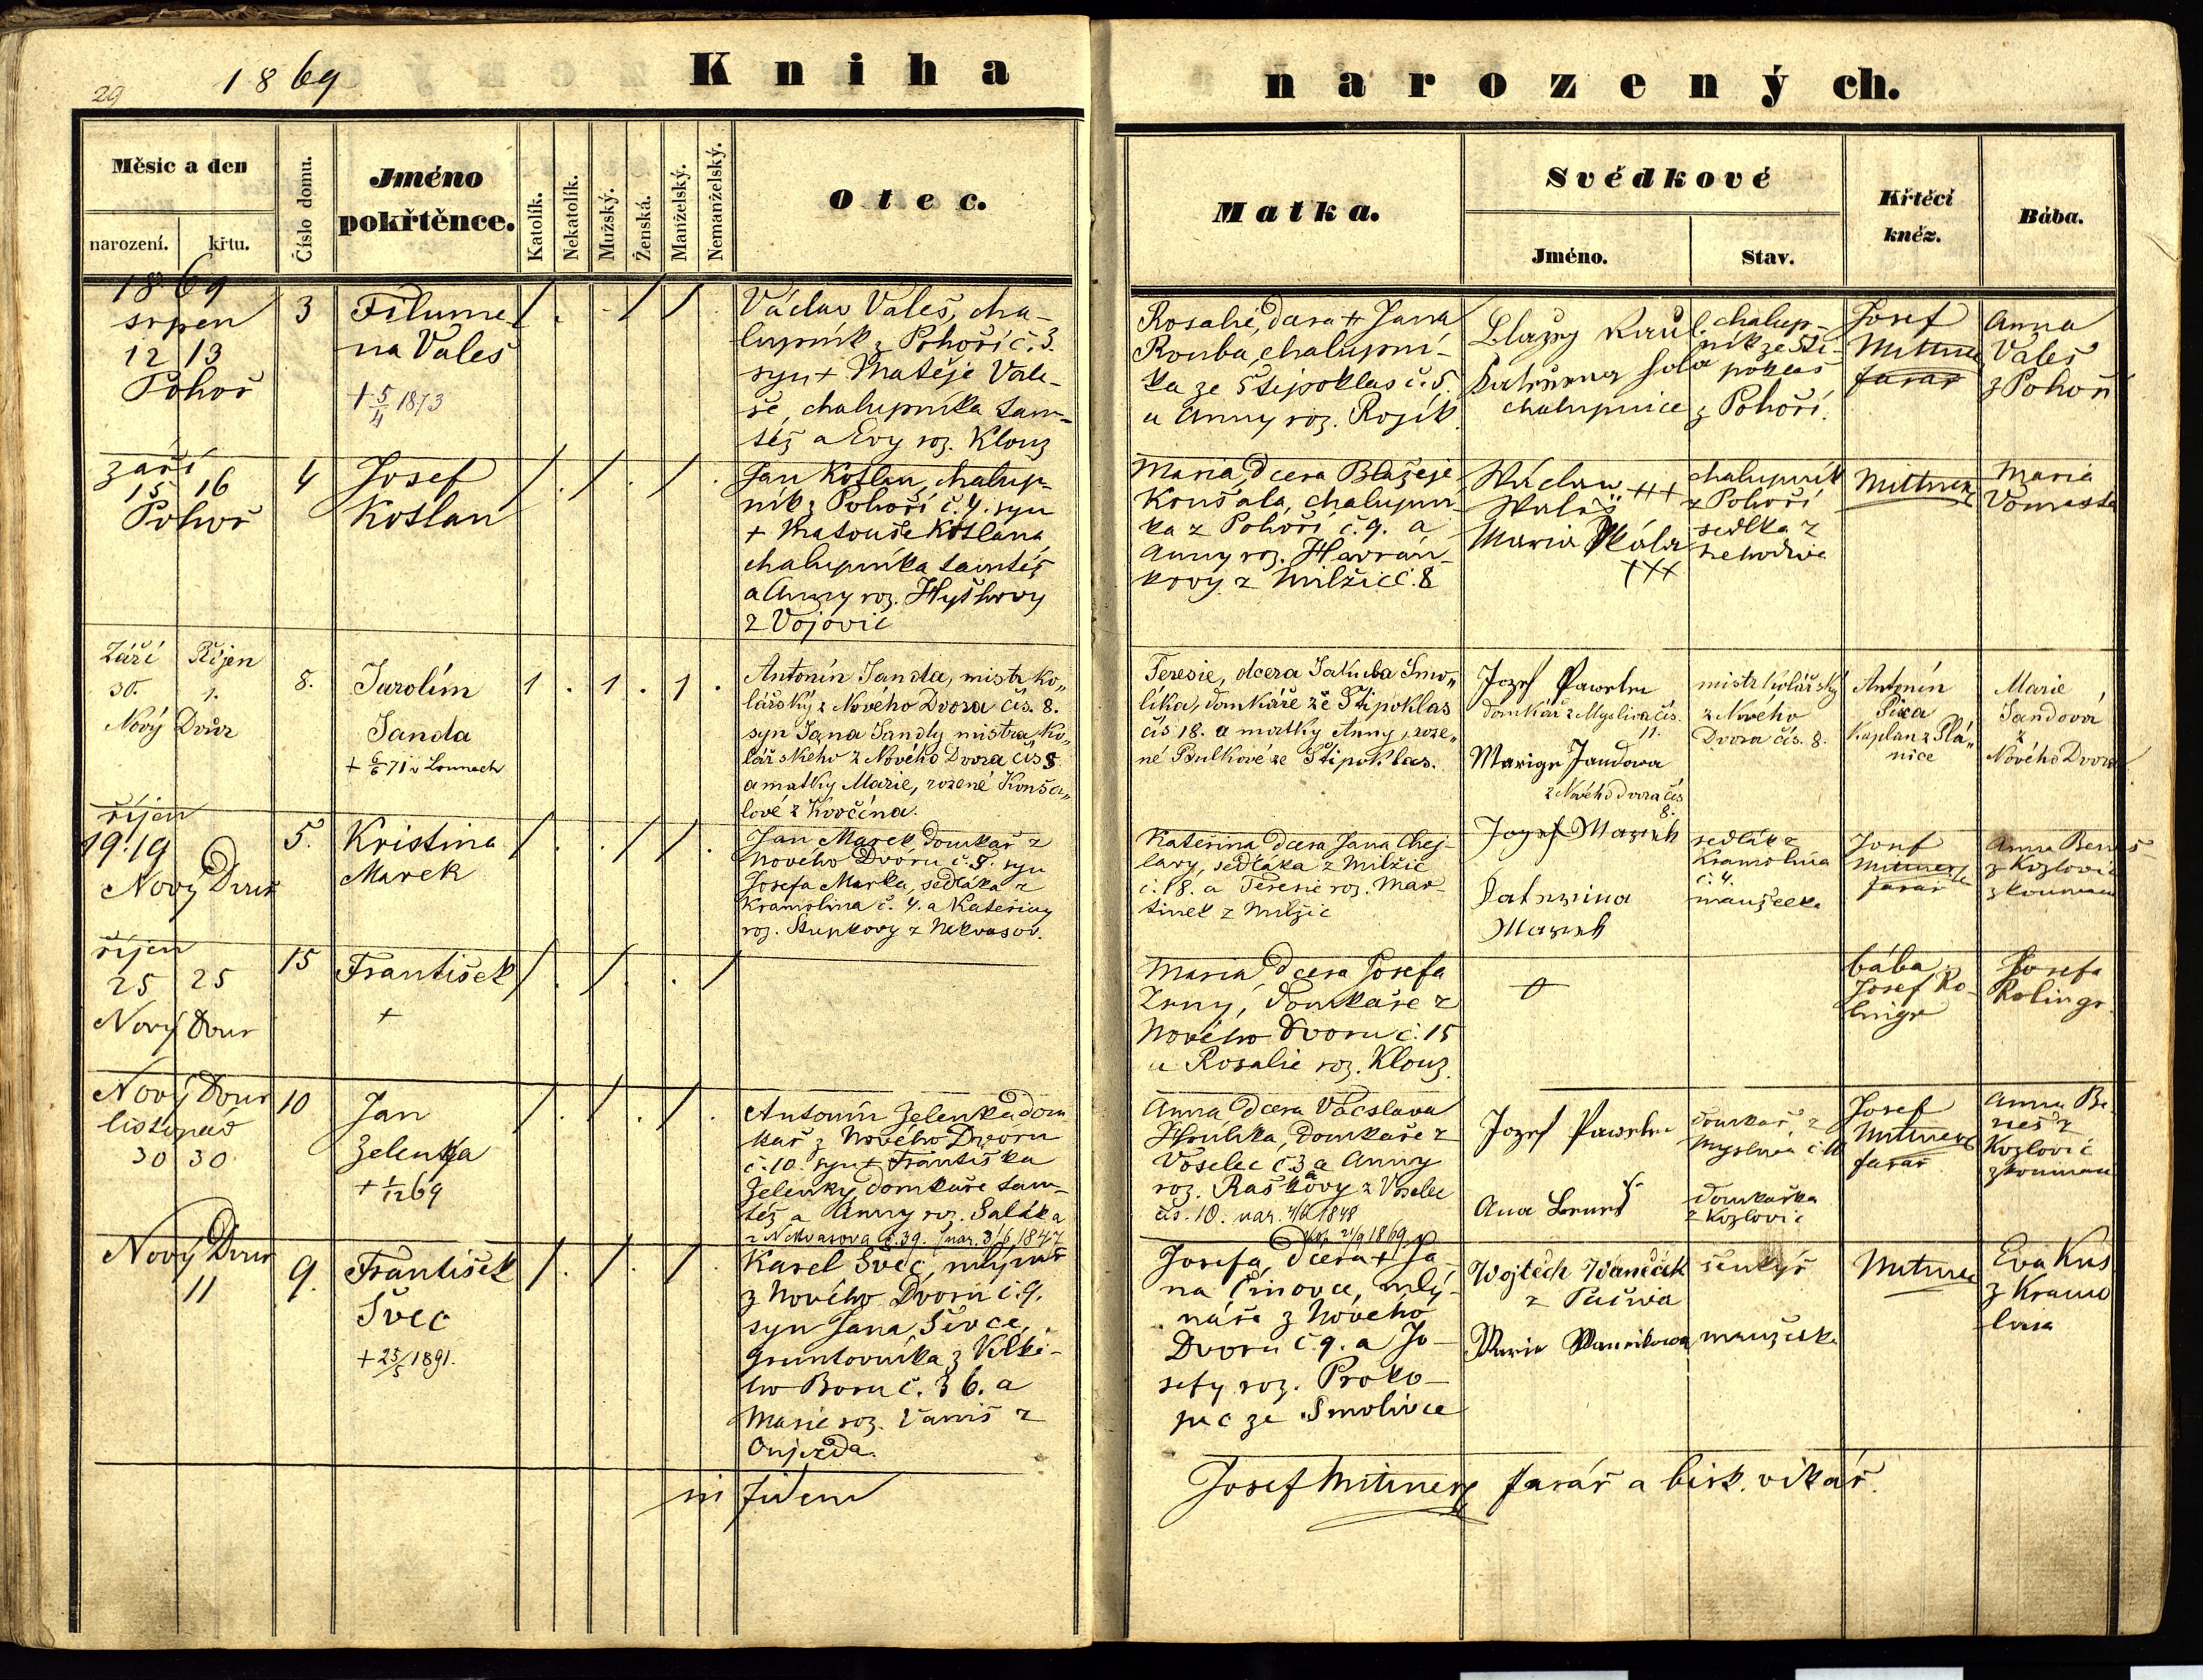 29
1869
Kniha
narozených.
Měsíc a den
narození.
křtu.
Číslo domu.
Jméno
pokřtěnce.
Katolík.
Nekatolík.
Mužský.
Ženská.
Manželský.
Nemanželský.
Otec.
Matka.
Svědkové
Jméno.
Stav.
Křtěcí
kněz.
Bába.
1869
srpen
12 13
Pohoř
3
Filume
na Valeš
+ 5/4 1873
/ . . / / .
Václav Valeš, cha-
lupník z Pohoří č. 3.
syn + Matěje Vale-
še, chalupníka tam-
též a Evy roz. Klouz
Rosalie, dcera + Jana
Rouba, chalupní-
ka ze Štipoklas č. 5.
a Anny roz. Rojík
Blažej
chalupnice
chalup-
ník ze Sti-
poklas
z Pohoří.
Josef
Mittner
farář
Anna
Valeš
z Pohoří
září
15 16
Pohoř
4
Josef
Košlan
/ . / . / .
Jan Košlan, chalup-
ník z Pohoří č. 4. syn
+ Matouše Košlana
chalupníka tamtéž
a Anny roz.
z Vojovic
Maria, dcera Blažeje
Koušala, chalupní-
ka z Pohoří č. 9. a
Anny roz. Havrán-
kovy z Milžic č. 8
Václav +++
Waleš
Maria Skála
+++
chalupník
z Pohoří
sedlka z
Mittner
Maria
Září Říjen
30. 1.
Nový Dvůr
8.
Jarolím
Janda
+ 6/6 71 v Lounech
1 . 1 . 1 .
Antonín Janda, mistr ko„
lářský z Nového Dvora čís. 8.
syn Jana Jandy mistra ko„
lářského z Nového Dvora čís 8
a matky Marie, rozené Konša„
lové z Kovčína.
Teresie, dcera Jakuba Smo„
líka, domkáře ze Štipoklas
čís 18. a matky Anny, roze„
né Bulkové ze Štipoklas.
Jozef Pawelec
domkář z Myslíva čís.
11.
Marige Jandowa
z Nového dvora čís
8.
mistr kolářský
z Nového
Dvora čís. 8.
Antonín
kaplan z Plá„
nice
Marie
Jandová
z
Nového Dvora
říjen
19. 19
Nový Dvůr
5.
Kristina
Marek
/ . . / / .
Jan Marek, domkář z
Nového Dvoru č. 5. syn
Josefa Marka, sedláka z
Kramolína č. 4. a Kateřiny
roz. Stupkovy z Nekvasov.
Kateřina dcera Jana Chej-
lavy, sedláka z Milžic
č. 18. a Teresie roz. Mar-
tinek z Milžic
Jozef Marek
Katerzina
Marek
sedlák z
Kramolína
č. 4.
manželka
Josef
Mittner
farář
Anna Beneš
z Kozlovic
zkoumaná
říjen
25 25
Nový Dvůr
15
František
+
/ . / . . /
Maria, dcera Josefa
Zrny, domkáře z
Nového Dvoru č. 15
a Rosalie roz. Klouz.
bába
Josef Ro-
lingr
Josefa
Rolingr
Nový Dvůr
listopad
30 30
10
Jan
Zelenka
+ 1/12 69
/ . / . / .
Antonín Zelenka dom-
kář z Nového Dvoru
č. 10. syn + Františka
Zelenky, domkáře tam-
též a Anny roz. Saláka
z Nekvasova č. 39. /nar. 3/6 1847
Anna dcera Václava
Hrůhka, domkáře z
Voselec č 3 a Anny
roz. Raškovy z Voselec
čís. 10. nar. 1848
21/9 1869
Jozef Pawelec
Ana Beneš
domkář z
Myslíva č 11
domkářka
z Kozlovic
Josef
Mittner
farář
Anna Be-
neš z
Kozlovic
zkoumaná
Nový Dvůr
11
9.
František
Švec
+ 25/5 1891.
/ . / . / .
Karel Švec, mlynář
z Nového Dvoru č. 9.
syn Jana Ševce,
gruntovníka z Velké-
ho Boru č. 36. a
Marie roz. Vaniš z
Oujezda.
Josefa, dcera + Ja-
na Činovce, mly-
náře z Nového
Dvoru č. 9. a Jo-
sefy roz. Proko-
pec ze Smolivce
Wojtěch Waníček
z Pačiva
Marie Waníkowa
šenkýř
manželka
Mittner
Eva Kus
z Kramo
lína
in fidem
Josef Mittner farář a bisk. vikář.